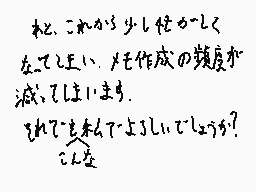 あと、これから少し忙がしく
なってしまい、メモ作成の頻度が
減ってしまいます。
それでも私でよろしいでしょうか?
こんな